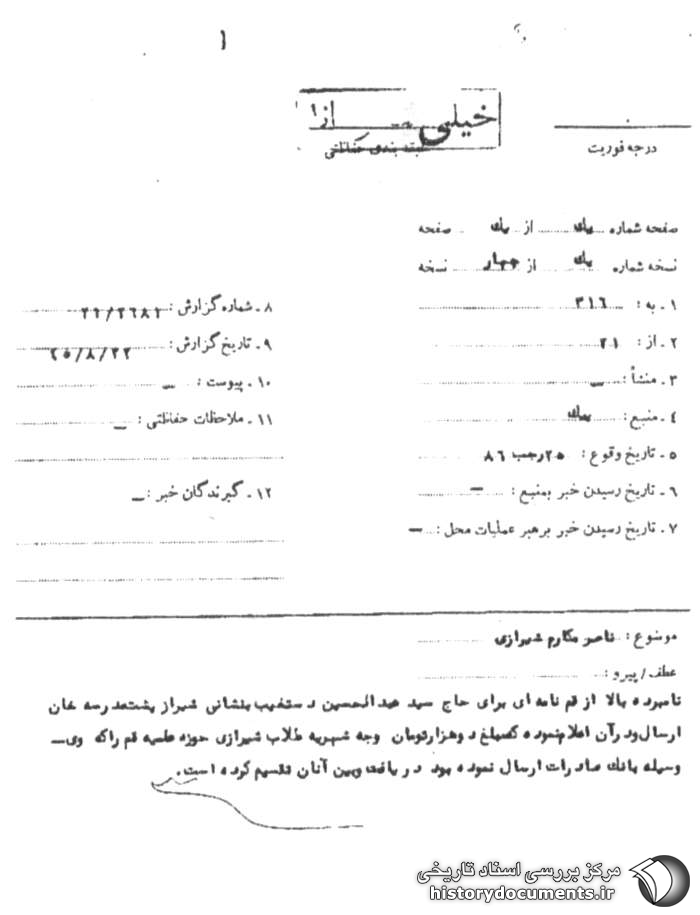 ۱
خیلی
طبقه بندی حفاظتی
درجه فوریت
صفحه شماره یک از یک صفحه
نسخه شماره یک از چهار نسخه
۱ ـ به : ۳۱۶
۲ ـ از : ۲۱
۳ ـ منشأ : ـ
۴ ـ منبع : یک
۵ ـ تاریخ وقوع : ۲۵رجب ۸۶
۶ ـ تاریخ رسیدن خبر بمنبع : ـ
۷ ـ تاریخ رسیدن خبر برهبر عملیات محل : ـ
۸ ـ شماره گزارش :
۹ ـ تاریخ گزارش : ۲۵/۸/۲۲
۱۰ ـ پیوست : ـ
۱۱ ـ ملاحظات حفاظتی : ـ
۱۲ ـ گیرندگان خبر : ـ
موضوع : ناصر مکارم شیرازی
عطف / پیرو :
نامبرده بالا از قم نامه ای برای حاج سید عبدالحسین دستغیب بنشانی شیراز پشتمدرسه خان
ارسال ودرآن اعلام نموده کمبلغ دوهزارتومان وجه شهریه طلاب شیرازی حوزه علمیه قم راکه وی ـ
وسیله بانک صادرات ارسال نموده بود دریافت وبین آنان تقسیم کرده است .
مرکز بررسی اسناد تاریخی
historydocuments.ir